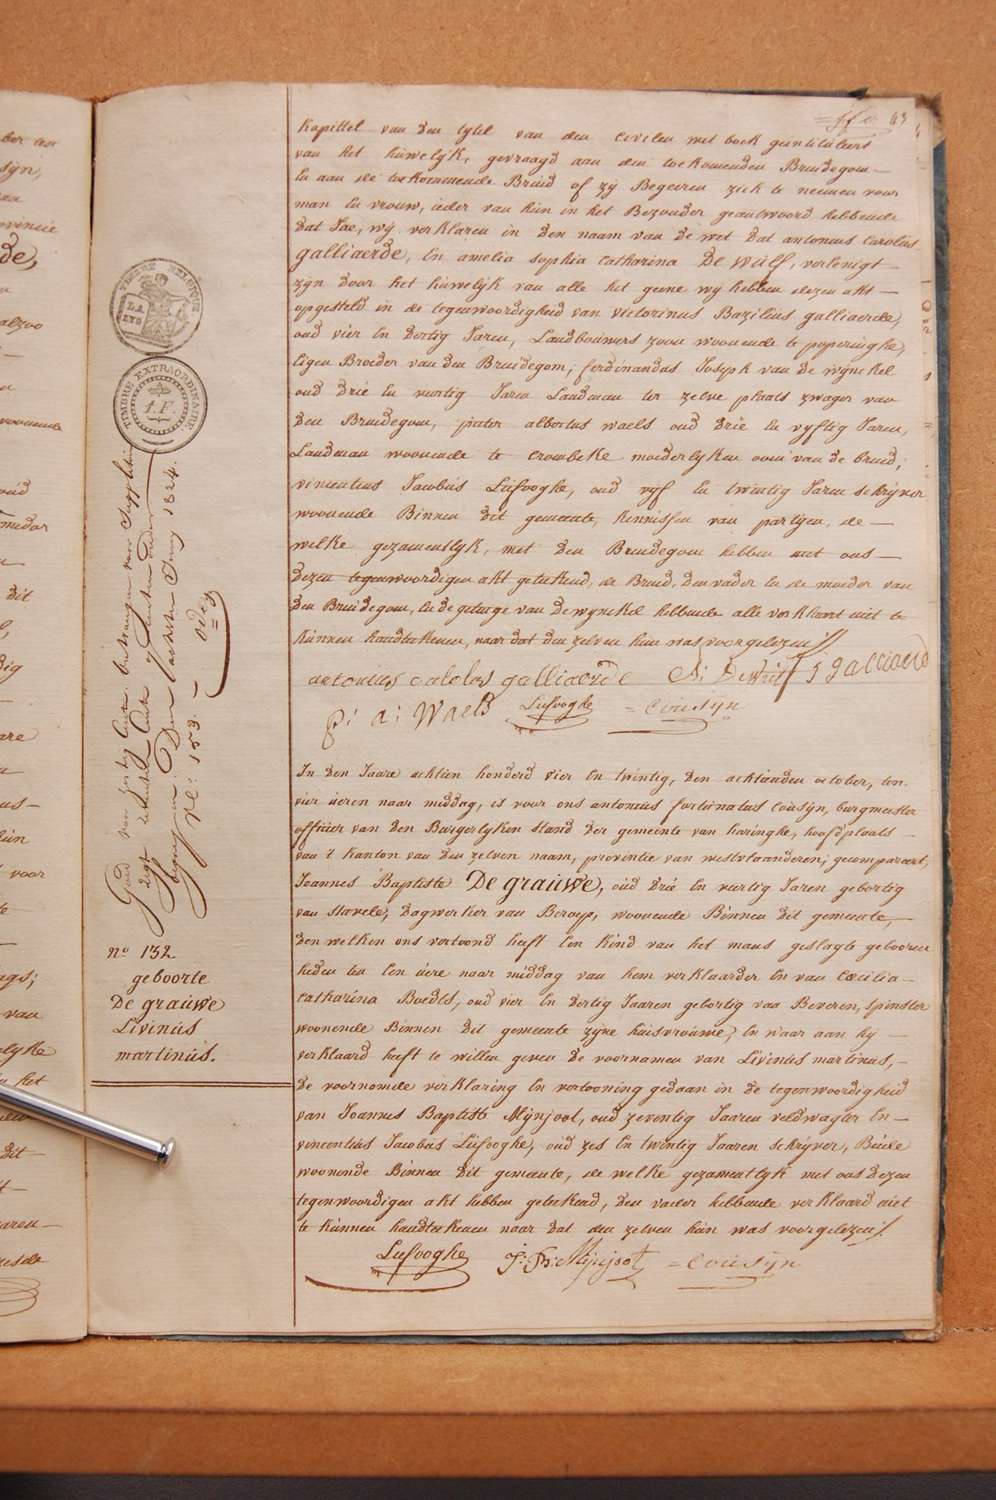 kapittel van den tytel van den civilen wet boek geintituleert
van het huwelyk, gevraagd aan den toekomenden Bruidegom —
En aan de toekomende Bruid of zy Begeeren zich te neemen voor
man En vrouw, ieder van hun in het Bezonder geantwoord hebbende
dat Jae, wy verklaren in den naam van de wet dat antonius carolus
galliaerde, En amelia sophia catharina De wulf, vereenigt —
zyn door het huwelyk van alle het geene wy hebben dezen akt —
opgesteld in de tegenwoordigheid van victorinus Bazilius galliaerde,
oud vier en dertig Jaren, Landbouwers zoon woonende te poperinghe,
Eigen Broeder van den Bruidegom; ferdinandus Joseph van de wynckel
oud drie En veertig Jaren Landman ter zelve plaats zwager van
den Bruidegom, pieter albertus waels oud drie En vyftig Jaren,
Landman woonende te crombeke moederlyken oom van de bruid;
vincentius Jacobus Lefooghe, oud vyf En twintig Jaren schryver
woonende Binnen dit gemeente, kennissen van partyen, de —
welke gezamentlyk, met den Bruidegom hebben met ons —
dezen tegenwoordigen akt geteekend, de Bruid, den vader En de moeder van
den Bruidegom, En de getuige van Dewynckel hebbende alle verklaert niet te
kunnen handteekenen, naar dat den zelven hun was voorgelezen
antonius carolus galliaerde
p: a: Waels Lefooghe = Cousyn
In den Jaare achtien honderd vier En twintig, den achtienden october, ten
vier ueren naar middag, is voor ons antonius fortunatus cousyn, borgmeester
officier van den Burgerlyken stand der gemeente van haringhe, hoofdplaats —
van 't kanton van den zelven naam, provintie van westvlaanderen; gecompareert,
Joannes Baptiste De grauwe, oud drie En veertig Jaren gebortig
van stavele, dagwerker van Beroep, woonende Binnen dit gemeente, —
den welken ons vertoond heeft Een kind van het mans geslagte gebooren
heden ten Een uere naar middag van hem verklaarder En van Cœcilia —
catharina Boedts, oud vier En dertig Jaaren gebortig van Beveren, spinster
woonende Binnen dit gemeente zyne huisvrouwe, En waar aan hy —
verklaard heeft te willen geven de voornamen van Livinus martinus, —
de voornoemde verklaring En vertooning gedaan in de tegenwoordigheid
van Joannes Baptiste Mynjoot, oud zeventig Jaaren veldwagter En —
vincentius Jacobus Lefooghe, oud zes En twintig Jaaren schryver, Beide
woonende Binnen dit gemeente, de welke gezamentlyk met ons dezen
tegenwoordigen akt hebben geteekend, den vader hebbende verklaard niet
te kunnen handteekenen naar dat den zelven hun was voorgelezen
Lefooghe J: B: Mijnjoot = Cousyn
TIMBRE EXTRAORDINAIRE
1. F.
n° 132
geboorte
De grauwe
Livinus
martinus.